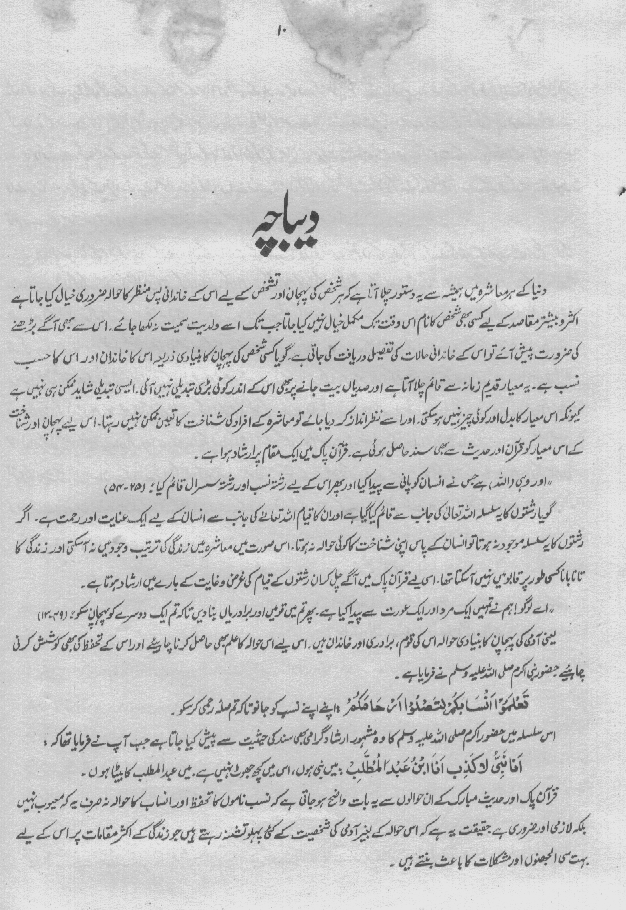 ۱۰
دیباچہ
دنیا کے ہر معاشرہ میں ہمیشہ سے یہ دستور چلا آتا ہے کہ ہر شخص کی پہچان اور تشخص کے لیے اس کے خاندانی پس منظر کا حوالہ ضروری خیال کیا جاتا ہے
اکثر و بیشتر مقاصد کے لیے کسی بھی شخص کا نام اس وقت تک مکمل خیال نہیں کیا جاتا جب تک اسے ولدیت سمیت نہ لکھا جائے۔ اس سے بھی آگے بڑھنے
کی ضرورت پیش آئے تو اس کے خاندانی حالات کی تفصیل دریافت کی جاتی ہے۔ گویا کسی شخص کی پہچان کا بنیادی ذریعہ اس کا خاندان اور اس کا حسب
نسب ہے۔ یہ معیار قدیم زمانہ سے قائم چلا آتا ہے اور صدیاں بیت جانے پر بھی اس کے اندر کوئی بڑی تبدیلی نہیں آئی۔ ایسی تبدیلی شاید ممکن ہی نہیں ہے
کیونکہ اس معیار کا بدل اور کوئی چیز نہیں ہو سکتی۔ اور اسے نظر انداز کر دیا جائے تو معاشرہ کے افراد کی شناخت کا تعین ممکن نہیں رہتا۔ اس لیے پہچان اور شناخت
کے اس معیار کو قرآن اور حدیث سے بھی سند حاصل ہوئی ہے۔ قرآن پاک میں ایک مقام پر ارشاد ہوا ہے۔
"اور وہی (اللہ) ہے جس نے انسان کو پانی سے پیدا کیا اور پھر اس کے لیے رشتہ نسب اور رشتہ سسرال قائم کیا" (۲۵-۵۴)
گویا رشتوں کا یہ سلسلہ اللہ تعالیٰ کی جانب سے قائم کیا گیا ہے اور ان کا قیام اللہ تعالےٰ کی جانب سے انسان کے لیے ایک عنایت اور رحمت ہے۔ اگر
رشتوں کا یہ سلسلہ موجود نہ ہوتا تو انسان کے پاس اپنی شناخت کا کوئی حوالہ نہ ہوتا۔ اس صورت میں معاشرہ میں زندگی کی ترتیب وجود میں نہ آ سکتی اور زندگی کا
تانا بانا کسی طور پر قابو میں نہیں آ سکتا تھا۔ اسی لیے قرآن پاک میں آگے چل کر ان رشتوں کے قیام کی غرض و غایت کے بارے میں ارشاد ہوتا ہے۔
"اے لوگو! ہم نے تمہیں ایک مرد اور ایک عورت سے پیدا کیا ہے۔ پھر تم میں قومیں اور برادریاں بنا دیں تاکہ تم ایک دوسرے کو پہچان سکو" (۴۹-۱۳)
یعنی آدمی کی پہچان کا بنیادی حوالہ اس کی قوم، برادری اور خاندان ہیں۔ اس لیے اس حوالہ کا علم بھی حاصل کرنا چاہیئے اور اس کے تحفظ کی بھی کوشش کرنی
چاہیئے حضور نبی اکرم صلی اللہ علیہ وسلم نے فرمایا ہے۔
تَعَلَّمُوْا اَنْسَابَکُمْ لِتَصِلُوْا اَرْحَامَکُمْ (اپنے اپنے نسب کو جانو تاکہ تم صلہ رحمی کر سکو۔
اس سلسلہ میں حضور اکرم صلی اللہ علیہ وسلم کا وہ مشہور ارشاد گرامی بھی سند کی حیثیت سے پیش کیا جاتا ہے جب آپ نے فرمایا تھا کہ:
اَنَا نَبِیٌّ لَا کَذِبَ اَنَا ابْنُ عَبْدِ الْمُطَّلِبْ۔ میں نبی ہوں، اس میں کچھ جھوٹ نہیں ہے۔ میں عبدالمطلب کا بیٹا ہوں۔
قرآن پاک اور حدیث مبارک کے ان حوالوں سے یہ بات واضح ہو جاتی ہے کہ نسب ناموں کا تحفظ اور انساب کا حوالہ نہ صرف یہ کہ معیوب نہیں
بلکہ لازمی اور ضروری ہے حقیقت یہ ہے کہ اس حوالہ کے بغیر آدمی کی شخصیت کے کئی پہلو تشنہ رہتے ہیں جو زندگی کے اکثر مقامات پر اس کے لیے
بہت سی الجھنوں اور مشکلات کا باعث بنتے ہیں۔